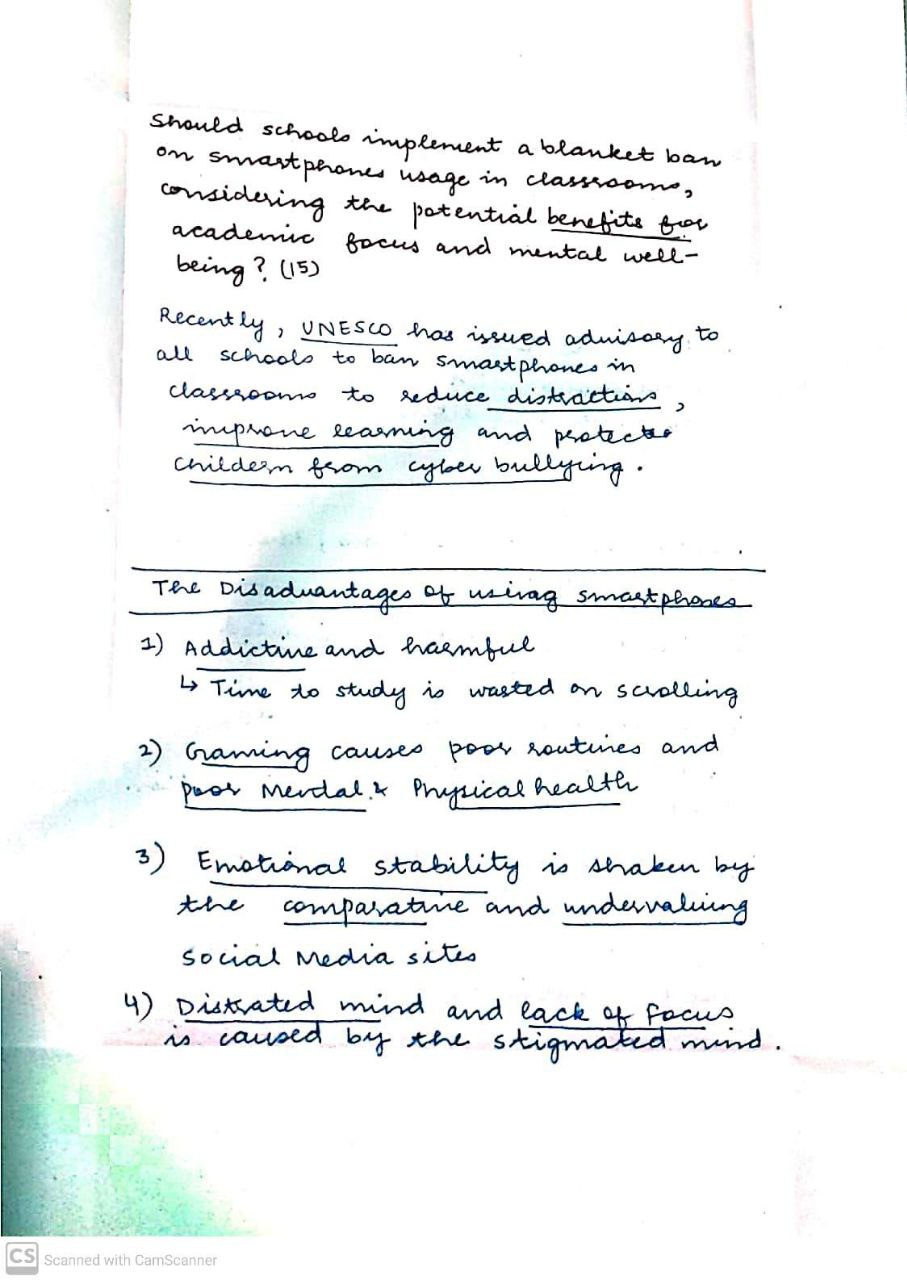 Should schools implement a blanket ban
on smartphones usage in classrooms,
considering the potential benefits for
academic focus and mental well-
being? (15)
Recently, UNESCO has issued advisory to
all schools to ban smartphones in
classrooms to reduce distractions,
improve learning and protects
childern from cyber bullying.
The Disadvantages of using smartphones
1) Addictive and harmful
↳ Time to study is wasted on scrolling
2) Gaming causes poor routines and
poor Mental & Physical health
3) Emotional stability is shaken by
the comparative and undervaluing
social Media sites
4) Distrated mind and lack of focus
is caused by the stigmated mind.
CS Scanned with CamScanner